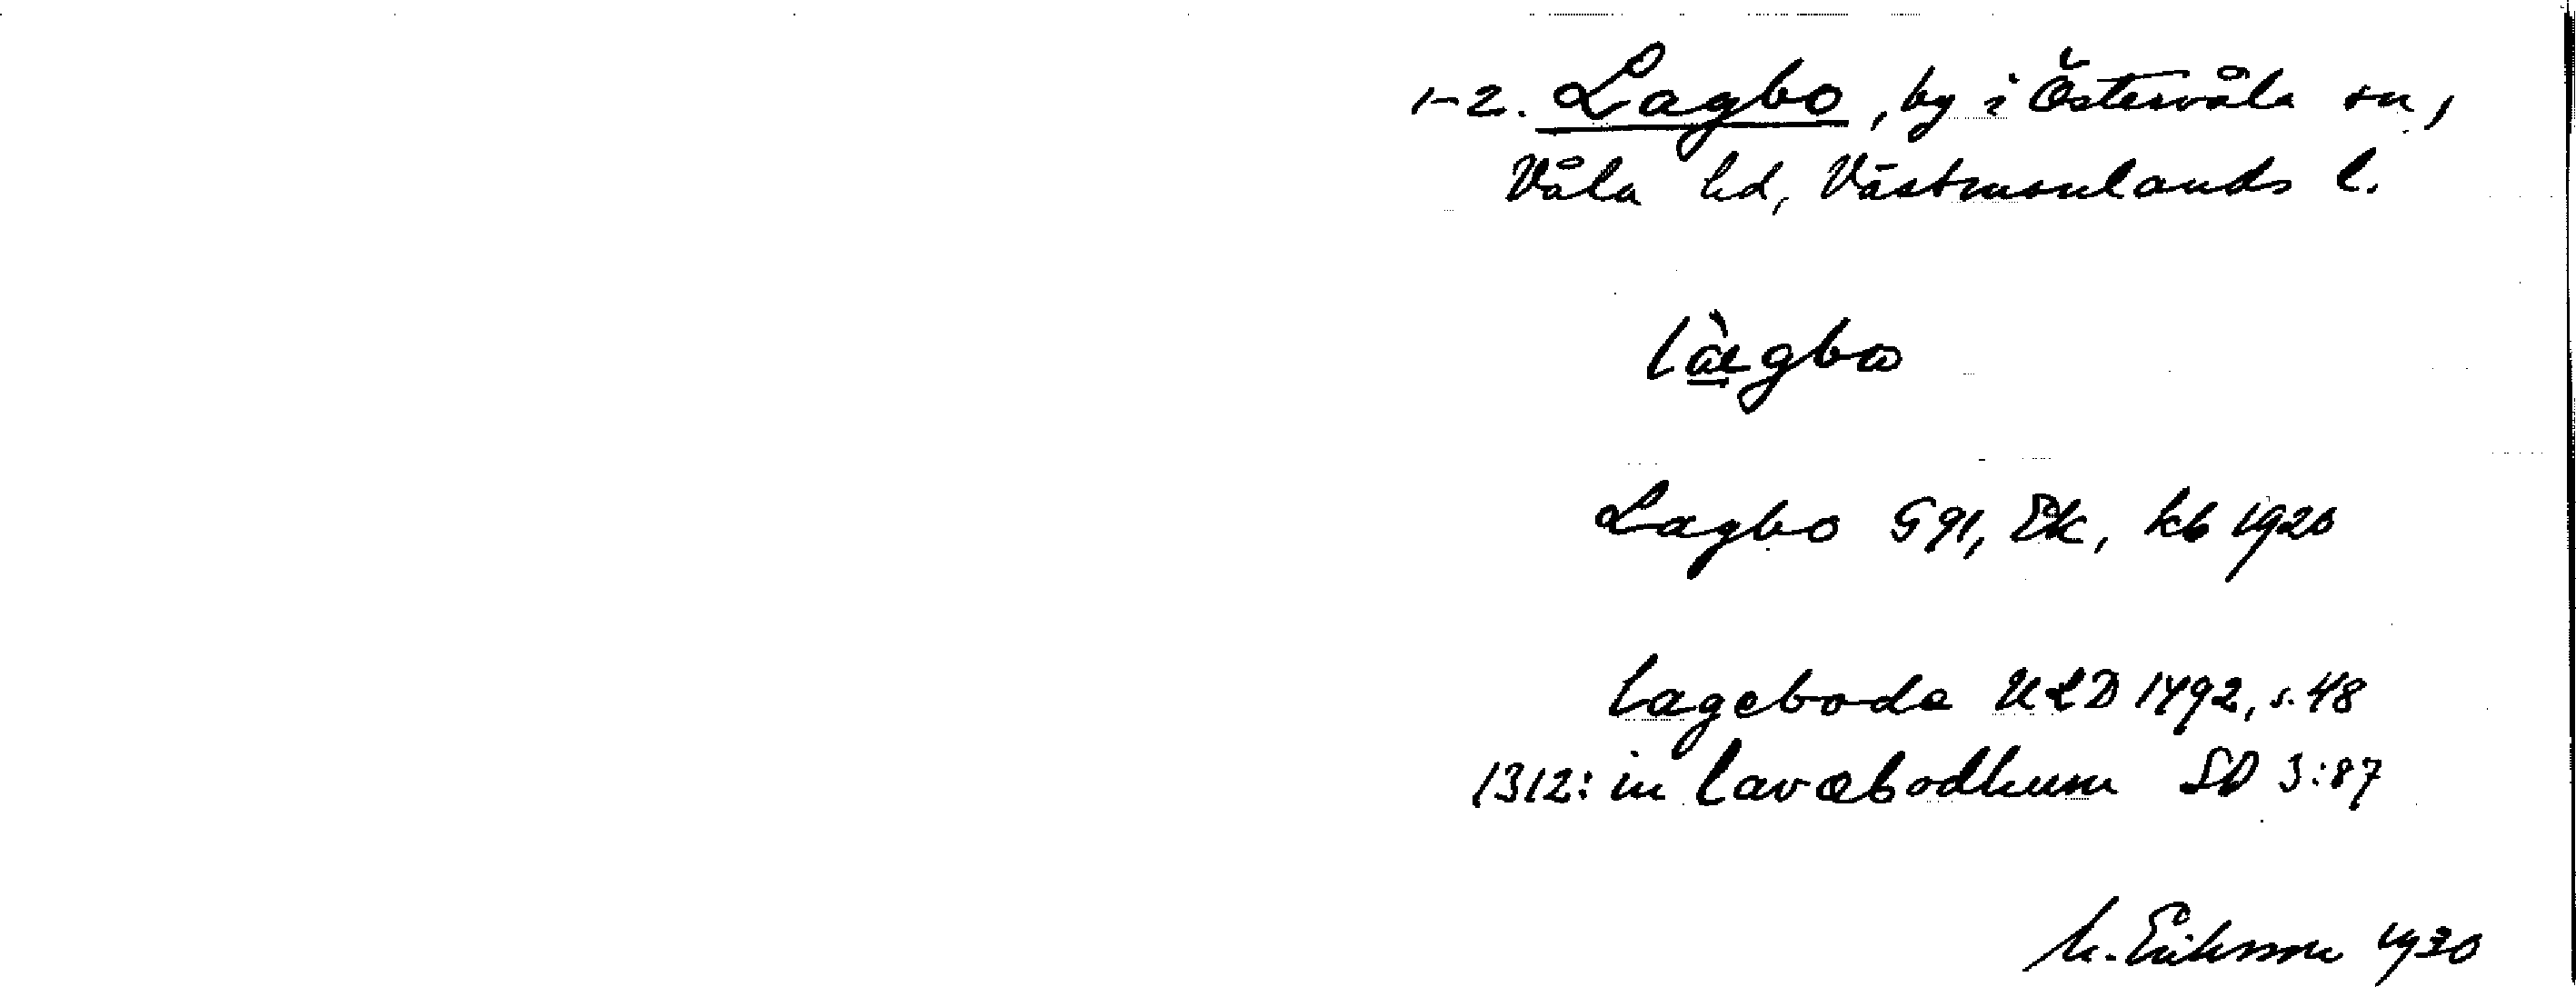 1-2. Lagbo, by i Östervåla sn,
Våla hd, Västmanlands l.
làgbo
Lagbo G 91, Ek, kb 1920
Lagebode ULD 1492, s. 48
1312: in Lavabodhum SD 3:87
M. Eriksson 1930